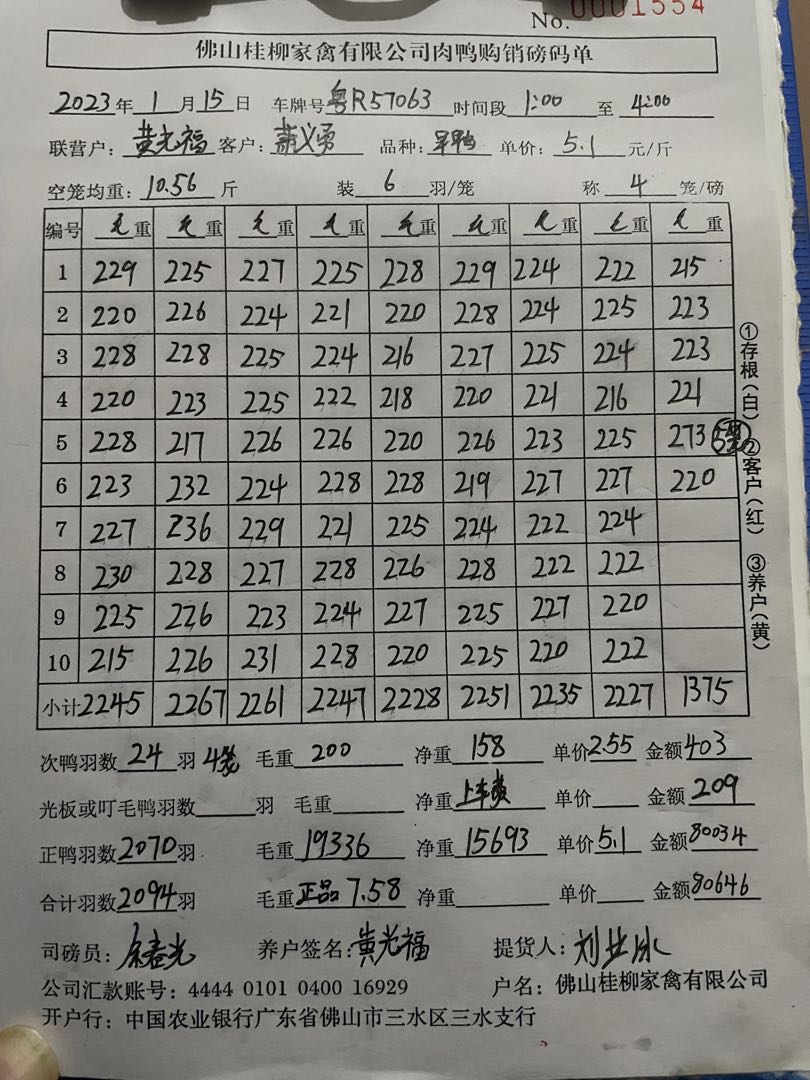 No. 0001554
佛山桂柳家禽有限公司肉鸭购销磅码单
2023年1月15日 车牌号粤R57063 时间段1:00至4:00
联营户:黄光福 客户:萧义勇 品种:旱鸭 单价:5.1元/斤
空笼均重:10.56斤 装6羽/笼 称4笼/磅
编号 毛重 毛重 毛重 毛重 毛重 毛重 毛重 毛重 毛重
1 229 225 227 225 228 229 224 222 215
2 220 226 224 221 220 228 224 225 223
3 228 228 225 224 216 227 225 224 223
4 220 223 225 222 218 220 221 216 221
5 228 217 226 226 220 226 223 225 273
6 223 232 224 228 228 219 227 227 220
7 227 236 229 221 225 224 222 224
8 230 228 227 228 226 228 222 222
9 225 226 223 224 227 225 227 220
10 215 226 231 228 220 225 220 222
小计 2245 2267 2261 2247 2228 2251 2235 2227 1375
①存根(白) ②客户(红) ③养户(黄)
次鸭羽数24羽 4笼 毛重200 净重158 单价2.55 金额403
光板或叮毛鸭羽数 羽 毛重 净重上车费 单价 金额209
正鸭羽数2070羽 毛重19336 净重15693 单价5.1 金额80034
合计羽数2094羽 毛重正品7.58 净重 单价 金额80646
司磅员:余春光 养户签名:黄光福 提货人:
公司汇款账号:4444 0101 0400 16929 户名:佛山桂柳家禽有限公司
开户行:中国农业银行广东省佛山市三水区三水支行